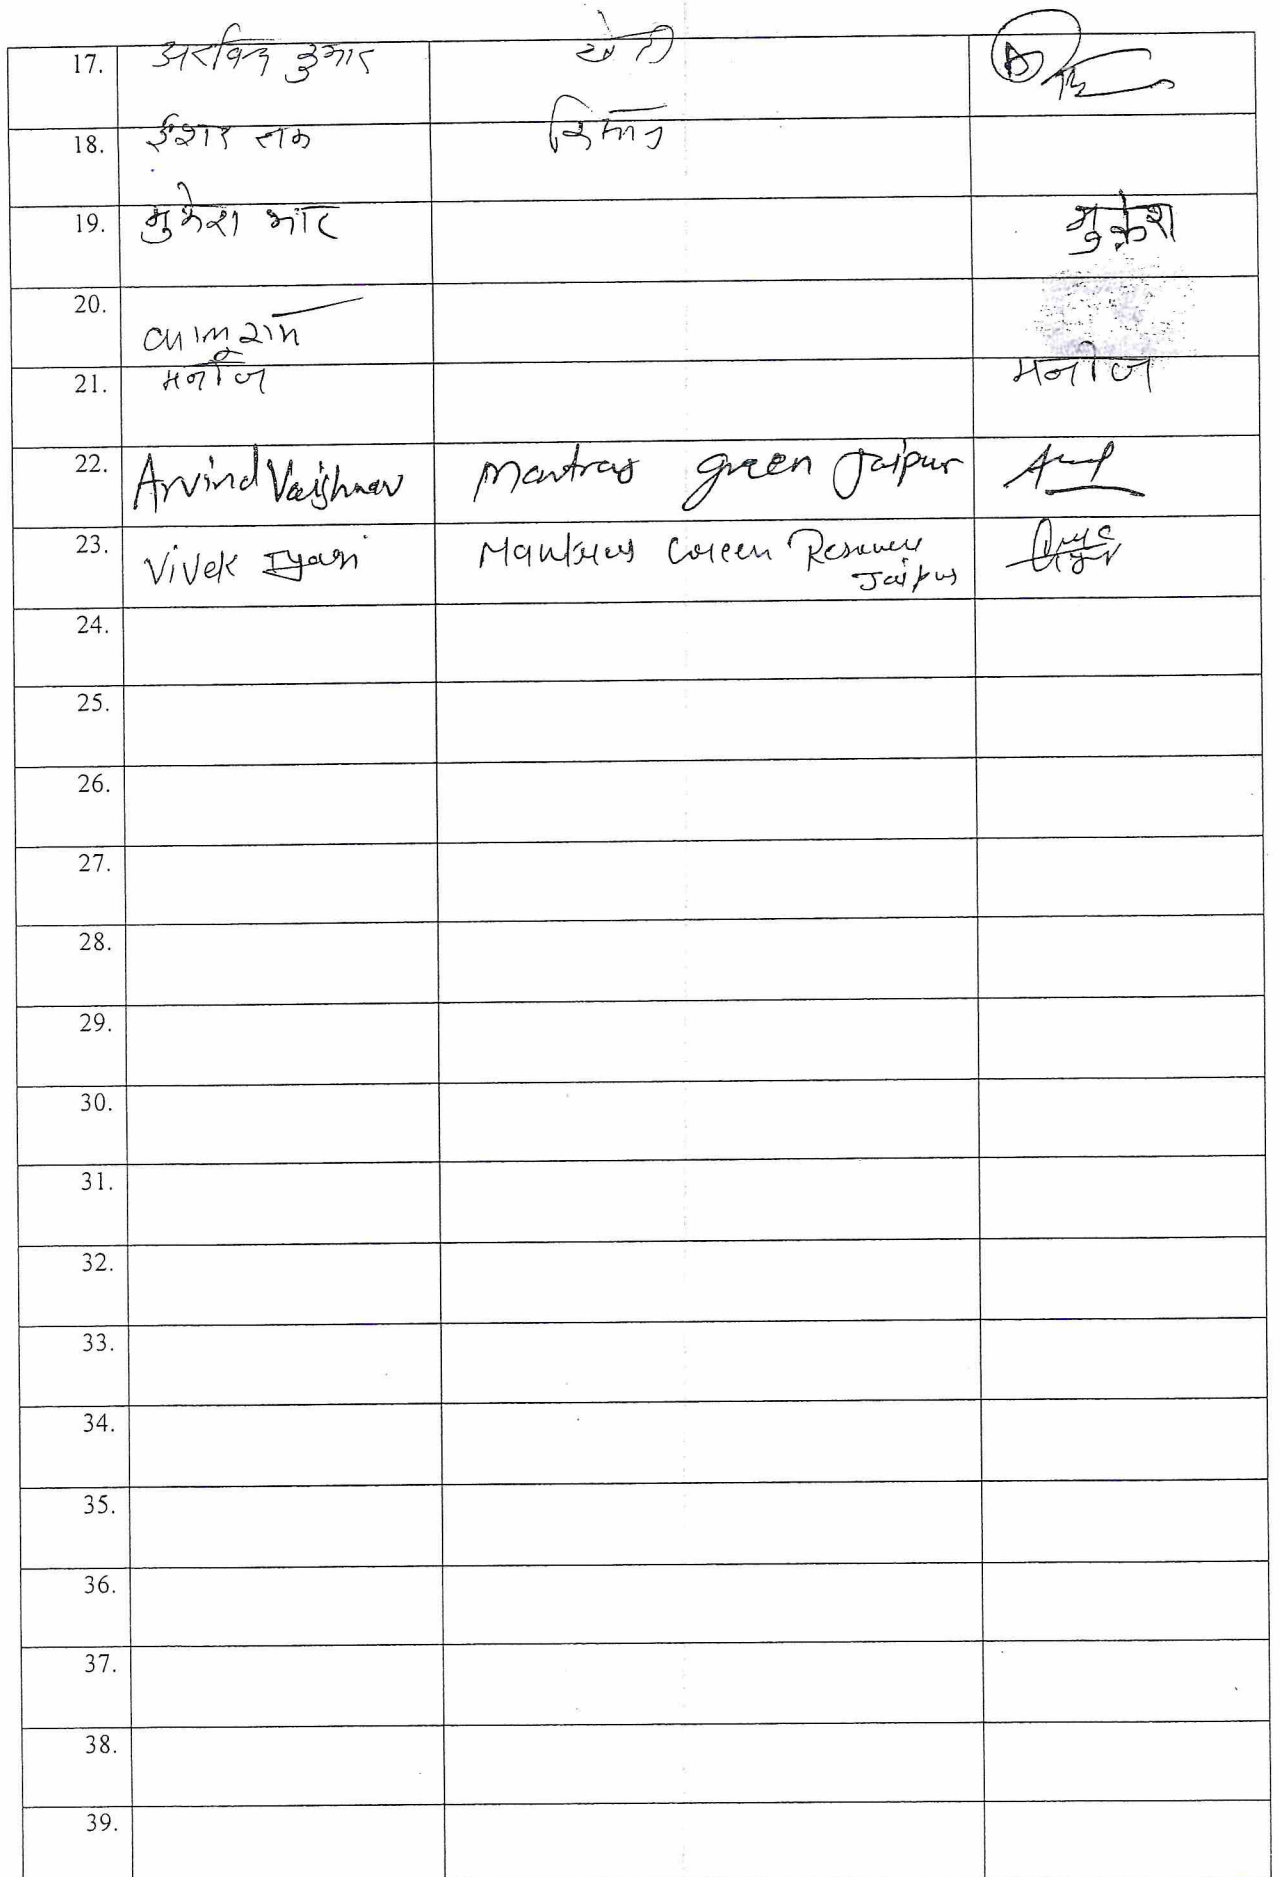 17. अरविन्द कुमार खेती
18. ईशर राम किसान
19. मुकेश भाट मुकेश
20.
21. मनोज मनोज
22. Arvind Vaishnav Mantras green Jaipur
23. Vivek Mantras Green Resources
Jaipur
24.
25.
26.
27.
28.
29.
30.
31.
32.
33.
34.
35.
36.
37.
38.
39.